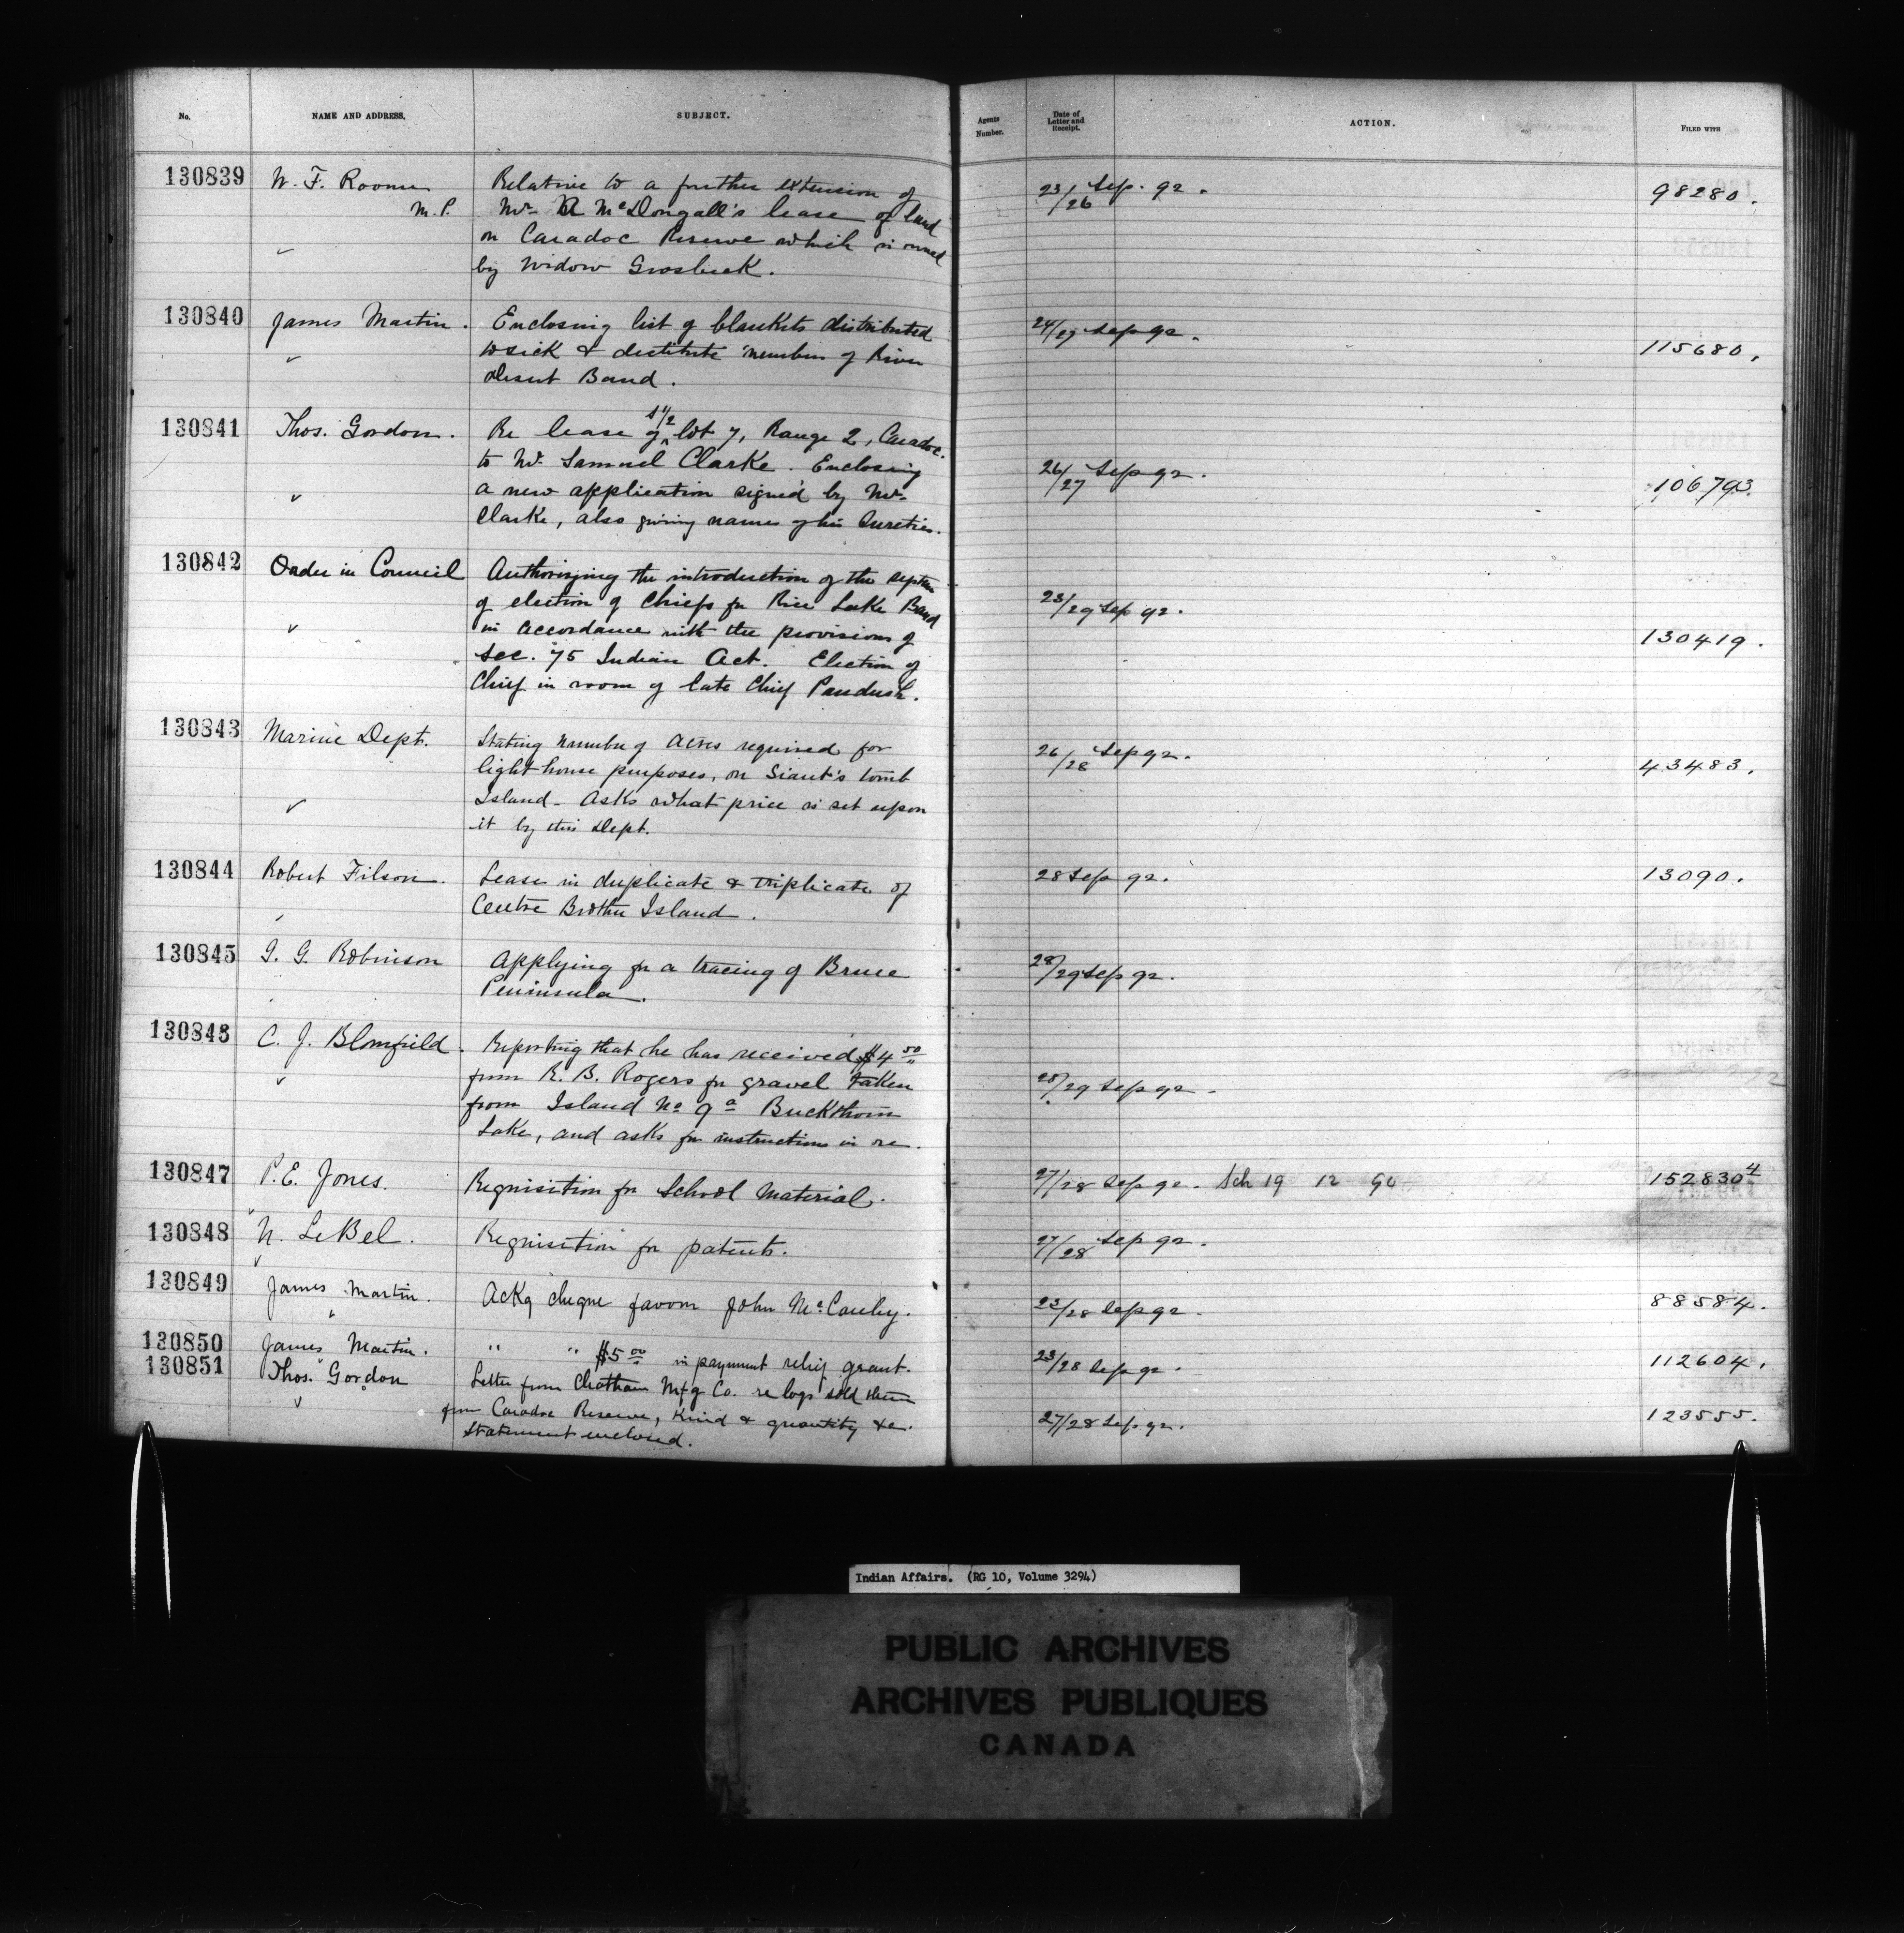 No. NAME AND ADDRESS. SUBJECT. Agents Number. Date of Letter and Receipt. ACTION. FILED WITH
130839 W. F. Roome Relative to a further extension of 23/26 Sep. 92. 98280.
M.P. Mr. McDongall's lease of land
on Caradoc Reserve which is owned
by Widow Grosbeck.
130840 James Martin. Enclosing list of blankets distributed 24/27 Sep 92. 115680.
to sick & destitute members of River
Desert Band.
130841 Thos. Gordon. Re lease of S 1/2 lot 7, Range 2, Caradoc. 26/27 Sep 92. 106793.
to Mr. Samuel Clarke. Enclosing
a new application signed by Mr.
Clarke, also giving names of his Sureties.
130842 Order in Council Authorizing the introduction of the system 23/29 Sep 92. 130419.
of election of Chiefs for Rice Lake Band
in accordance with the provisions of
Sec. 75 Indian Act. Election of
Chief in room of late Chief Paudush.
130843 Marine Dept. Stating number of acres required for 26/28 Sep 92. 43483.
light house purposes, on Giant's tomb
Island - Asks what price is set upon
it by this Dept.
130844 Robert Filson. Lease in duplicate & triplicate of 28 Sep 92. 13090.
Centre Brother Island.
130845 G. G. Robinson Applying for a tracing of Bruce 28/29 Sep 92.
Peninsula.
130846 C. J. Blomfield. Reporting that he has received $4 50 28/29 Sep 92.
from R. B. Rogers for gravel taken
from Island No 9a Buckthorn
Lake, and asks for instructions in re.
130847 P. E. Jones. Requisition for School Material. 27/28 Sep 92. Sch 19 12 94 152830 4
130848 N. LeBel. Requisition for patents. 27/28 Sep 92.
130849 James Martin. Ackg cheque favour John McCauley. 23/28 Sep 92. 88584.
130850 James Martin. " " $5 00 in payment relief grant. 23/28 Sep 92. 112604.
130851 Thos. Gordon Letter from Chatham Mfg Co. re logs sold them 27/28 Sep 92. 123555.
from Caradoc Reserve, Kind & quantity &c.
Statement enclosed.
Indian Affairs. (RG 10, Volume 3294)
PUBLIC ARCHIVES
ARCHIVES PUBLIQUES
CANADA